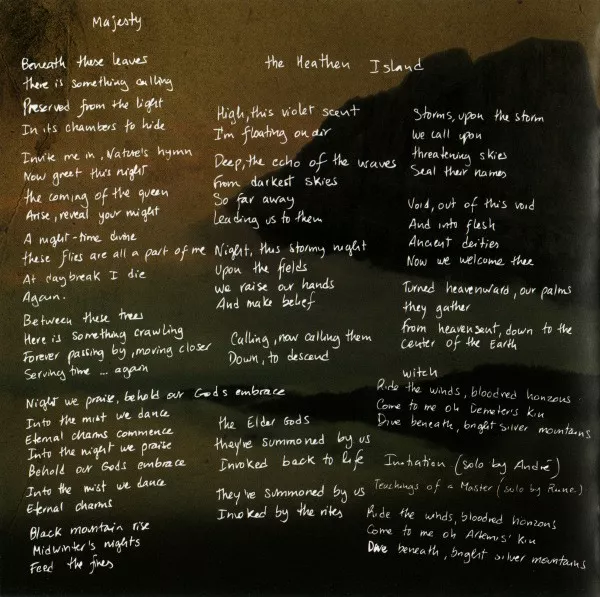 Majesty
Beneath these leaves
there is something calling
Preserved from the light
In its chambers to hide
Invite me in, Nature's hymn
Now greet this night
the coming of the queen
Arise, reveal your might
A night-time divine
these flies are all a part of me
At daybreak I die
Again.
Between these trees
Here is something crawling
Forever passing by, moving closer
Serving time ... again
Night we praise, behold our Gods embrace
Into the mist we dance
Eternal charms commence
Into the night we praise
Behold our Gods embrace
Into the mist we dance
Eternal charms
Black mountain rise
Midwinter's nights
Feed the fires
the Heathen Island
High, this violet scent
I'm floating on air
Deep, the echo of the waves
From darkest skies
So far away
Leading us to them
Night, this stormy night
Upon the fields
We raise our hands
And make belief
Calling, now calling them
Down, to descend
the Elder Gods
they've summoned by us
Invoked back to life
They've summoned by us
Invoked by the rites
Storms, upon the storm
we call upon
threatening skies
Seal their names
Void, out of this void
And into flesh
Ancient deities
Now we welcome thee
Turned heavenward, our palms
they gather
from heaven sent, down to the
center of the Earth
witch
Ride the winds, bloodred horizons
Come to me oh Demeter's kin
Dive beneath, bright silver mountains
Initiation (solo by André)
Teachings of a Master (solo by Rune.)
Ride the winds, bloodred horizons
Come to me oh Artemis' kin
Dive beneath, bright silver mountains